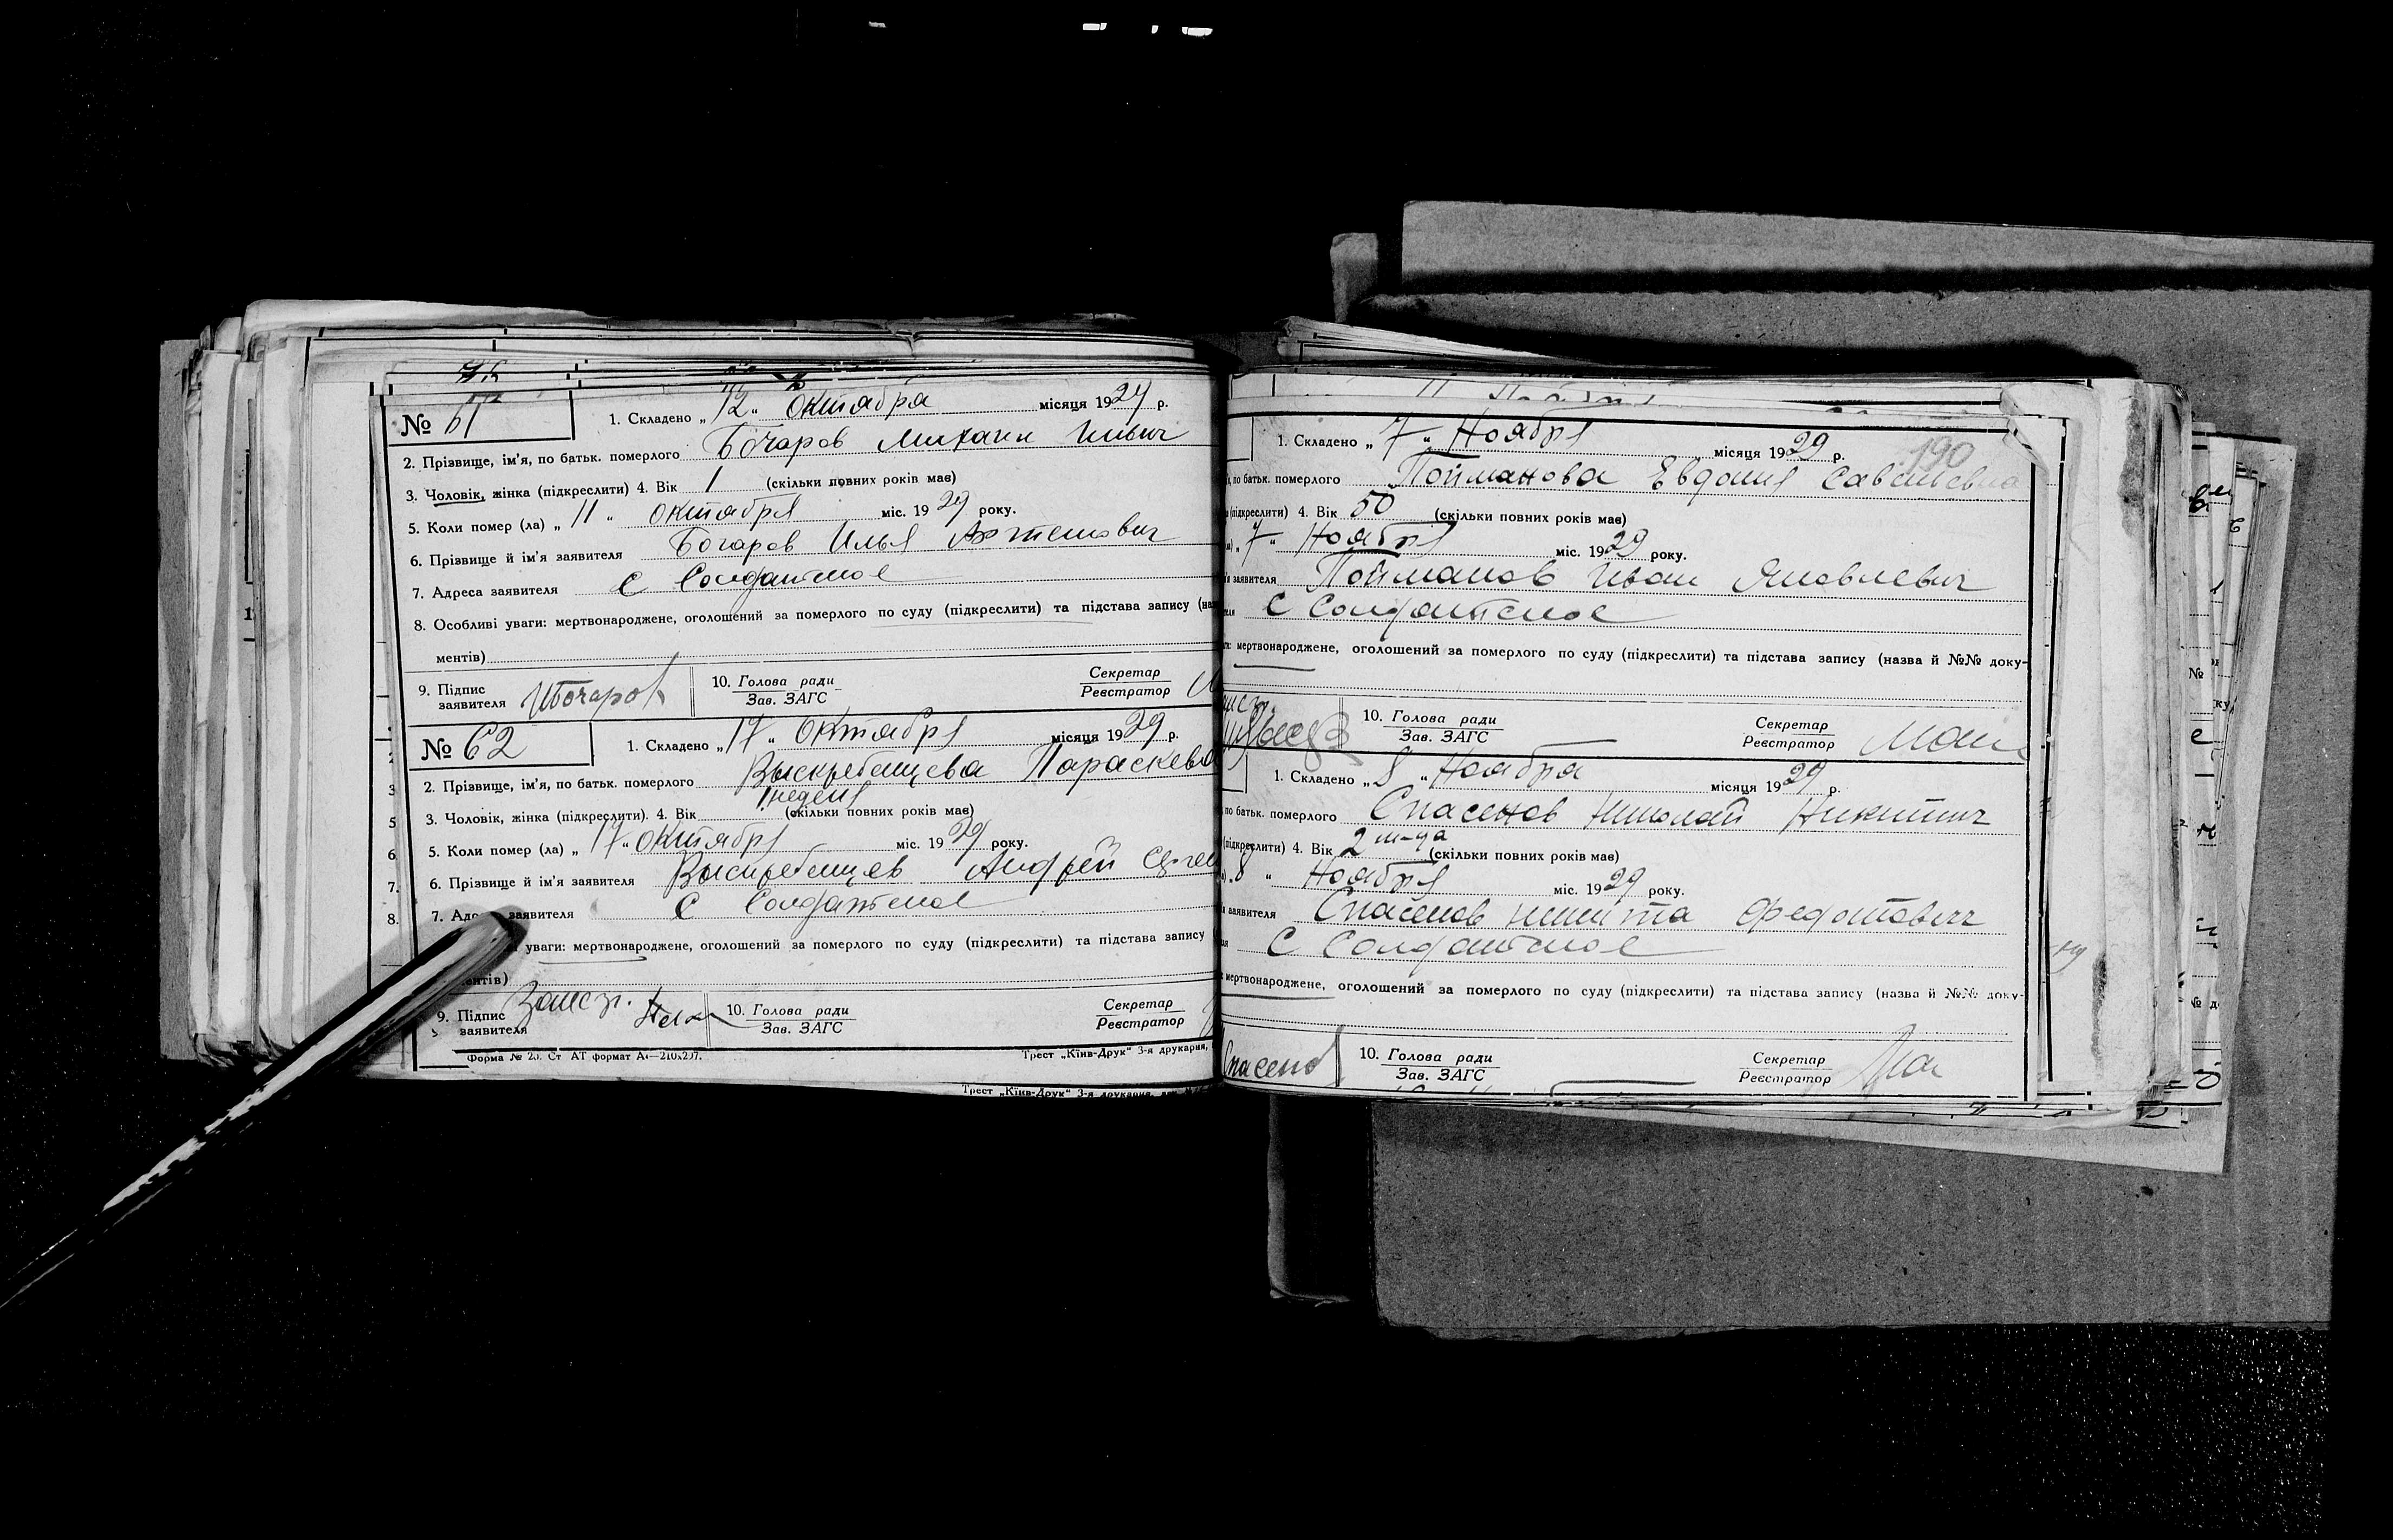 № 61
1. Складено „12" Октября місяця 1929 р.
2. Прізвище, ім'я, по батьк. померлого Бочаров Михаил Ильич
3. Чоловік, жінка (підкреслити) 4. Вік 1 (скільки повних років має)
5. Коли помер (ла) „11" октября міс. 1929 року.
6. Прізвище й ім'я заявителя Бочаров Илья Артемович
7. Адреса заявителя с Солдатское
8. Особливі уваги: мертвонароджене, оголошений за померлого по суду (підкреслити) та підстава запису (на
ментів)
9. Підпис заявителя ИБочаров
10. Голова ради
Зав. ЗАГС
Секретар
Реєстратор
№ 62
1. Складено „17" Октября місяця 1929 р.
2. Прізвище, ім'я, по батьк. померлого Выскребенцева Параскева
3. Чоловік, жінка (підкреслити). 4. Вік 1 неделя (скільки повних років має)
5. Коли помер (ла) „17" октября міс. 1929 року.
6. Прізвище й ім'я заявителя Выскребенцев Андрей
7. Адр заявителя с Солдатское
уваги: мертвонароджене, оголошений за померлого по суду (підкреслити) та підстава запису
ментів)
9. Підпис заявителя
10. Голова ради
Зав. ЗАГС
Секретар
Реєстратор
Форма № 20. Ст АТ формат А4—210х297.
Трест „Київ-Друк" 3-я друкарня,
Трест „Київ-Друк" 3-я друкарня,
190
1. Складено „7" Ноября місяця 1929 р.
по батьк. померлого Пойманова Евдокия Савельевна
(підкреслити) 4. Вік 50 (скільки повних років має)
„7" Ноября міс. 1929 року.
заявителя Пойманов Иван Яковлевич
с Солдатское
мертвонароджене, оголошений за померлого по суду (підкреслити) та підстава запису (назва й №№ доку-
10. Голова ради
Зав. ЗАГС
Секретар
Реєстратор
1. Складено „8" Ноября місяця 1929 р.
по батьк. померлого Спасенов Николай Никитич
(підкреслити) 4. Вік 2 м-ца (скільки повних років має)
„8" Ноября міс. 1929 року.
заявителя Спасенов Никита Федотович
с Солдатское
мертвонароджене, оголошений за померлого по суду (підкреслити) та підстава запису (назва й №№ доку-
Спасенов
10. Голова ради
Зав. ЗАГС
Секретар
Реєстратор